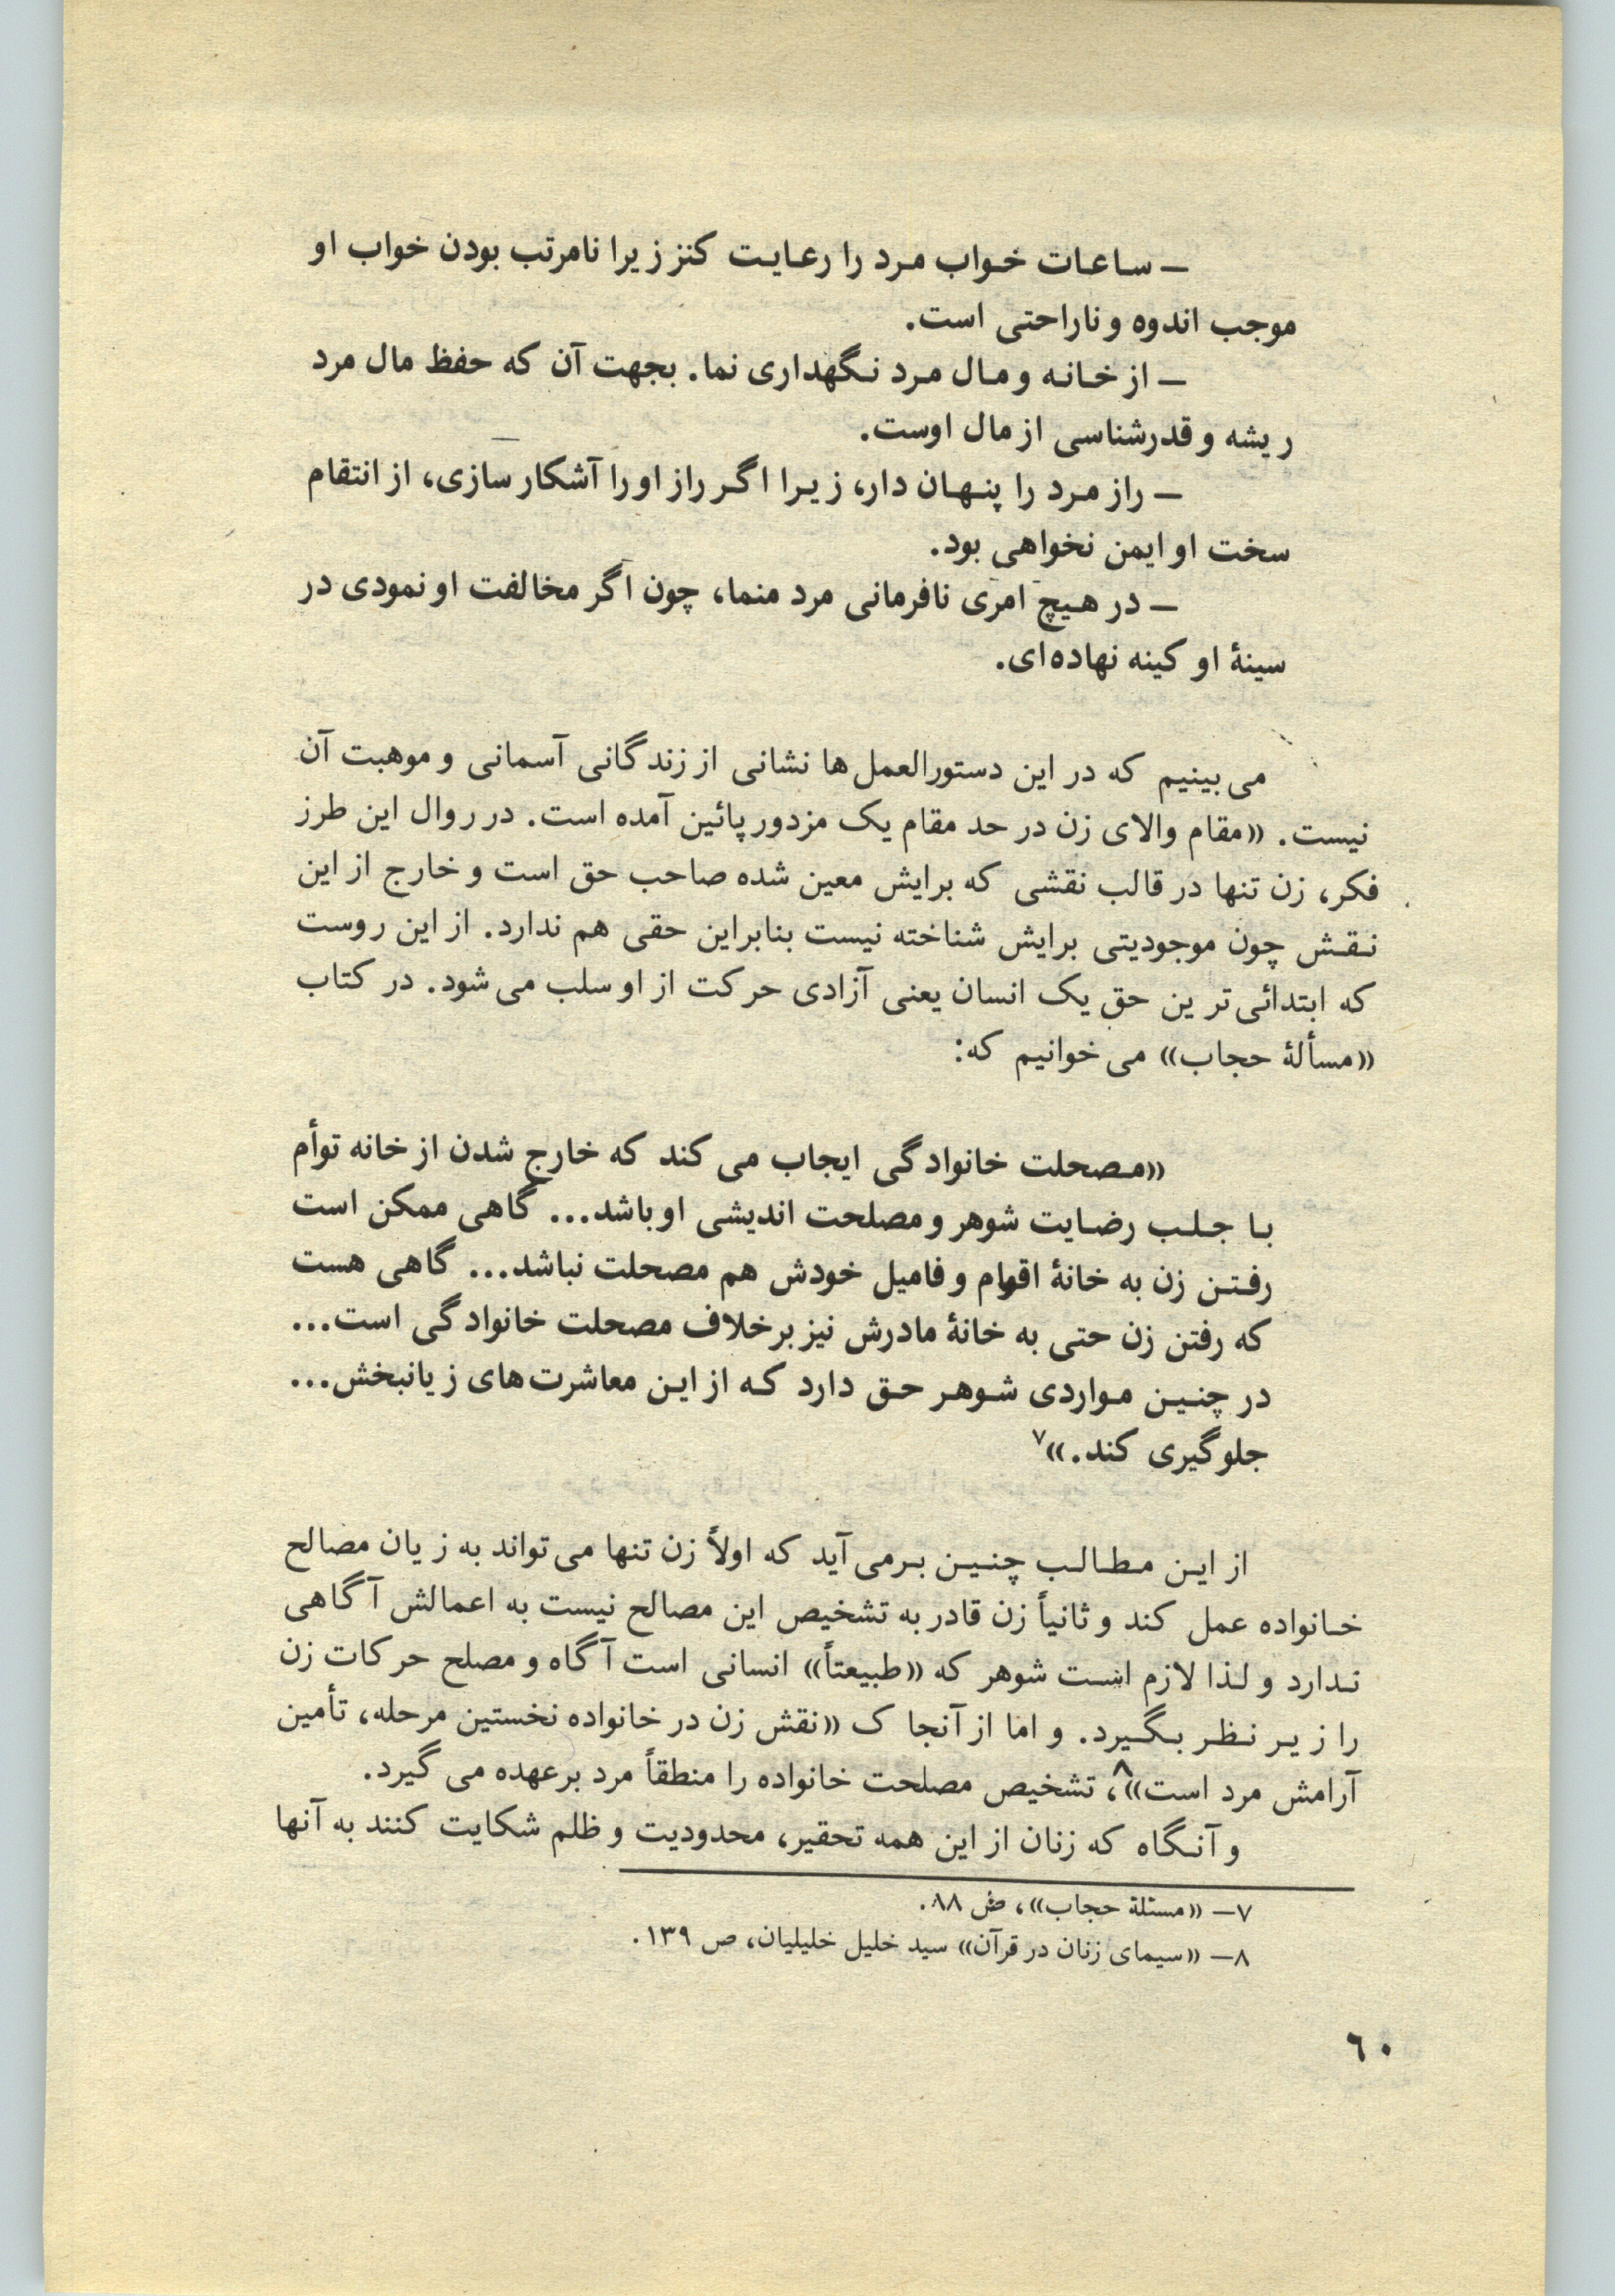 — ساعات خواب مرد را رعایت کنز زیرا نامرتب بودن خواب او
موجب اندوه و ناراحتی است.
— از خانه و مال مرد نگهداری نما. بجهت آن که حفظ مال مرد
ریشه و قدرشناسی از مال اوست.
— راز مرد را پنهان دار، زیرا اگر راز او را آشکار سازی، از انتقام
سخت او ایمن نخواهی بود.
— در هیچ امری نافرمانی مرد منما، چون اگر مخالفت او نمودی در
سینهٔ او کینه نهاده‌ای.
می‌بینیم که در این دستورالعمل‌ها نشانی از زندگانی آسمانی و موهبت آن
نیست. «مقام والای زن در حد مقام یک مزدور پائین آمده است. در روال این طرز
فکر، زن تنها در قالب نقشی که برایش معین شده صاحب حق است و خارج از این
نقش چون موجودیتی برایش شناخته نیست بنابراین حقی هم ندارد. از این روست
که ابتدائی‌ترین حق یک انسان یعنی آزادی حرکت از او سلب می‌شود. در کتاب
«مسألهٔ حجاب» می‌خوانیم که:
«مصحلت خانوادگی ایجاب می‌کند که خارج شدن از خانه توأم
با جلب رضایت شوهر و مصلحت اندیشی او باشد... گاهی ممکن است
رفتن زن به خانهٔ اقوام و فامیل خودش هم مصحلت نباشد... گاهی هست
که رفتن زن حتی به خانهٔ مادرش نیز برخلاف مصحلت خانوادگی است...
در چنین مواردی شوهر حق دارد که از این معاشرت‌های زیانبخش...
جلوگیری کند.»۷
از این مطالب چنین برمی‌آید که اولاً زن تنها می‌تواند به زیان مصالح
خانواده عمل کند و ثانیاً زن قادر به تشخیص این مصالح نیست به اعمالش آگاهی
ندارد و لذا لازم است شوهر که «طبیعتاً» انسانی است آگاه و مصلح حرکات زن
را زیر نظر بگیرد. و اما از آنجا ک «نقش زن در خانواده نخستین مرحله، تأمین
آرامش مرد است»۸، تشخیص مصلحت خانواده را منطقاً مرد برعهده می‌گیرد.
و آنگاه که زنان از این همه تحقیر، محدودیت و ظلم شکایت کنند به آنها
۷— «مسئلهٔ حجاب»، ص ۸۸.
۸— «سیمای زنان در قرآن» سید خلیل خلیلیان، ص ۱۳۹.
۶۰